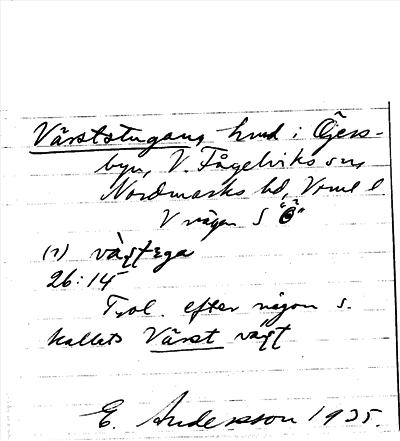 Värststugan, hmd i Öjers-
byn, V. Fågelviks sn,
Nordmarks hd, Vrml l
V vägen S "Ö"
(1)
26:14
Trol. efter någon s.
kallats Värst
E. Andersson 1935.